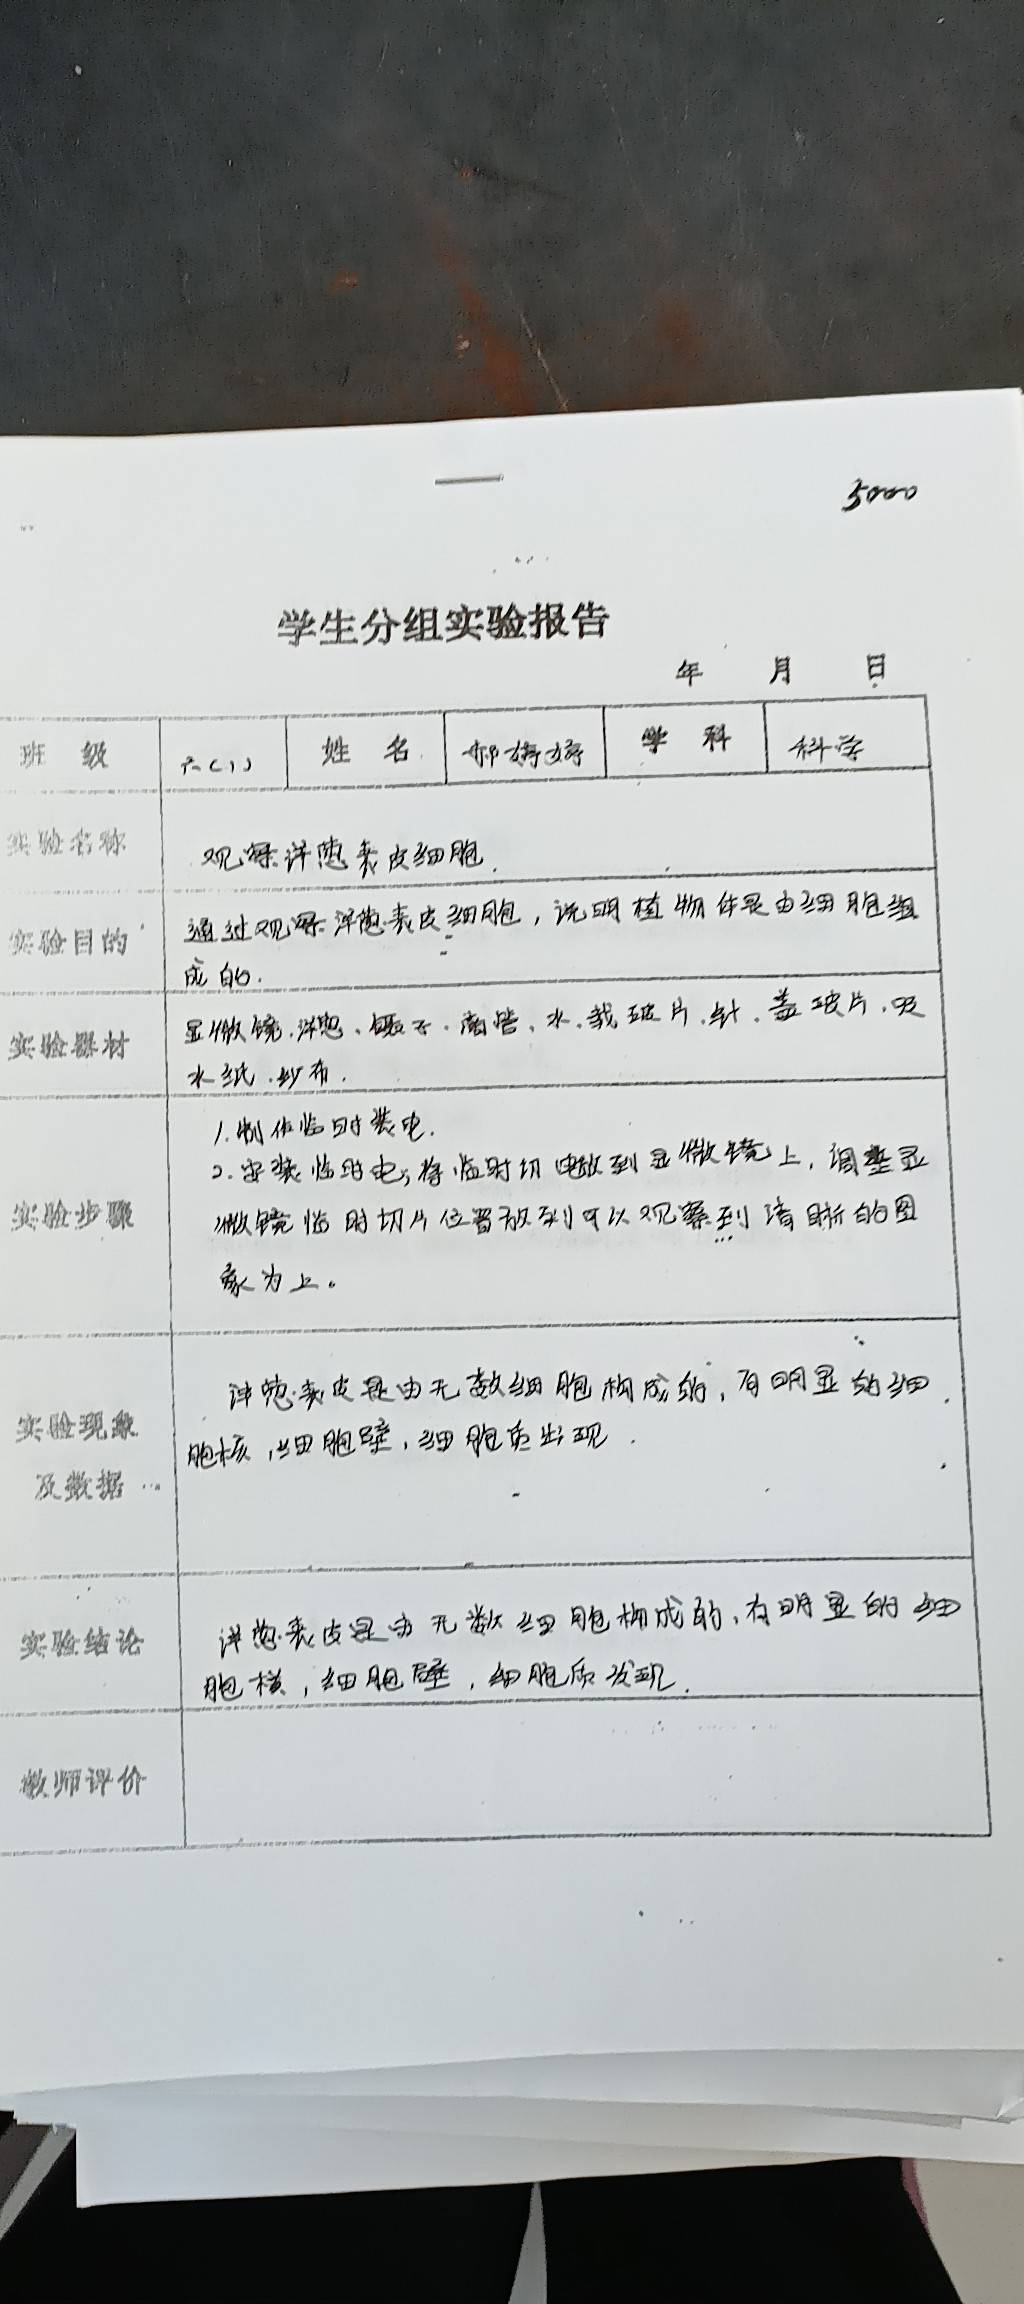 5000
学生分组实验报告
年 月 日
班 级 六(1) 姓 名 郝婷婷 学 科 科学
实验名称 观察洋葱表皮细胞.
实验目的 通过观察洋葱表皮细胞，说明植物体是由细胞组
成的.
实验器材 显微镜.洋葱、镊子.滴管、水.载玻片.针.盖玻片.吸
水纸.纱布.
1.制作临时装电.
2.安装临时电,将临时切 放到显微镜上，调整显
实验步骤 微镜临时切片位置放到可以观察到清晰的图
象为上。
洋葱表皮是由无数细胞构成的，有明显的细
实验现象 胞核，细胞壁，细胞质出现.
及数据
洋葱表皮是由无数细胞构成的，有明显的细
实验结论 胞核，细胞壁，细胞质发现.
教师评价